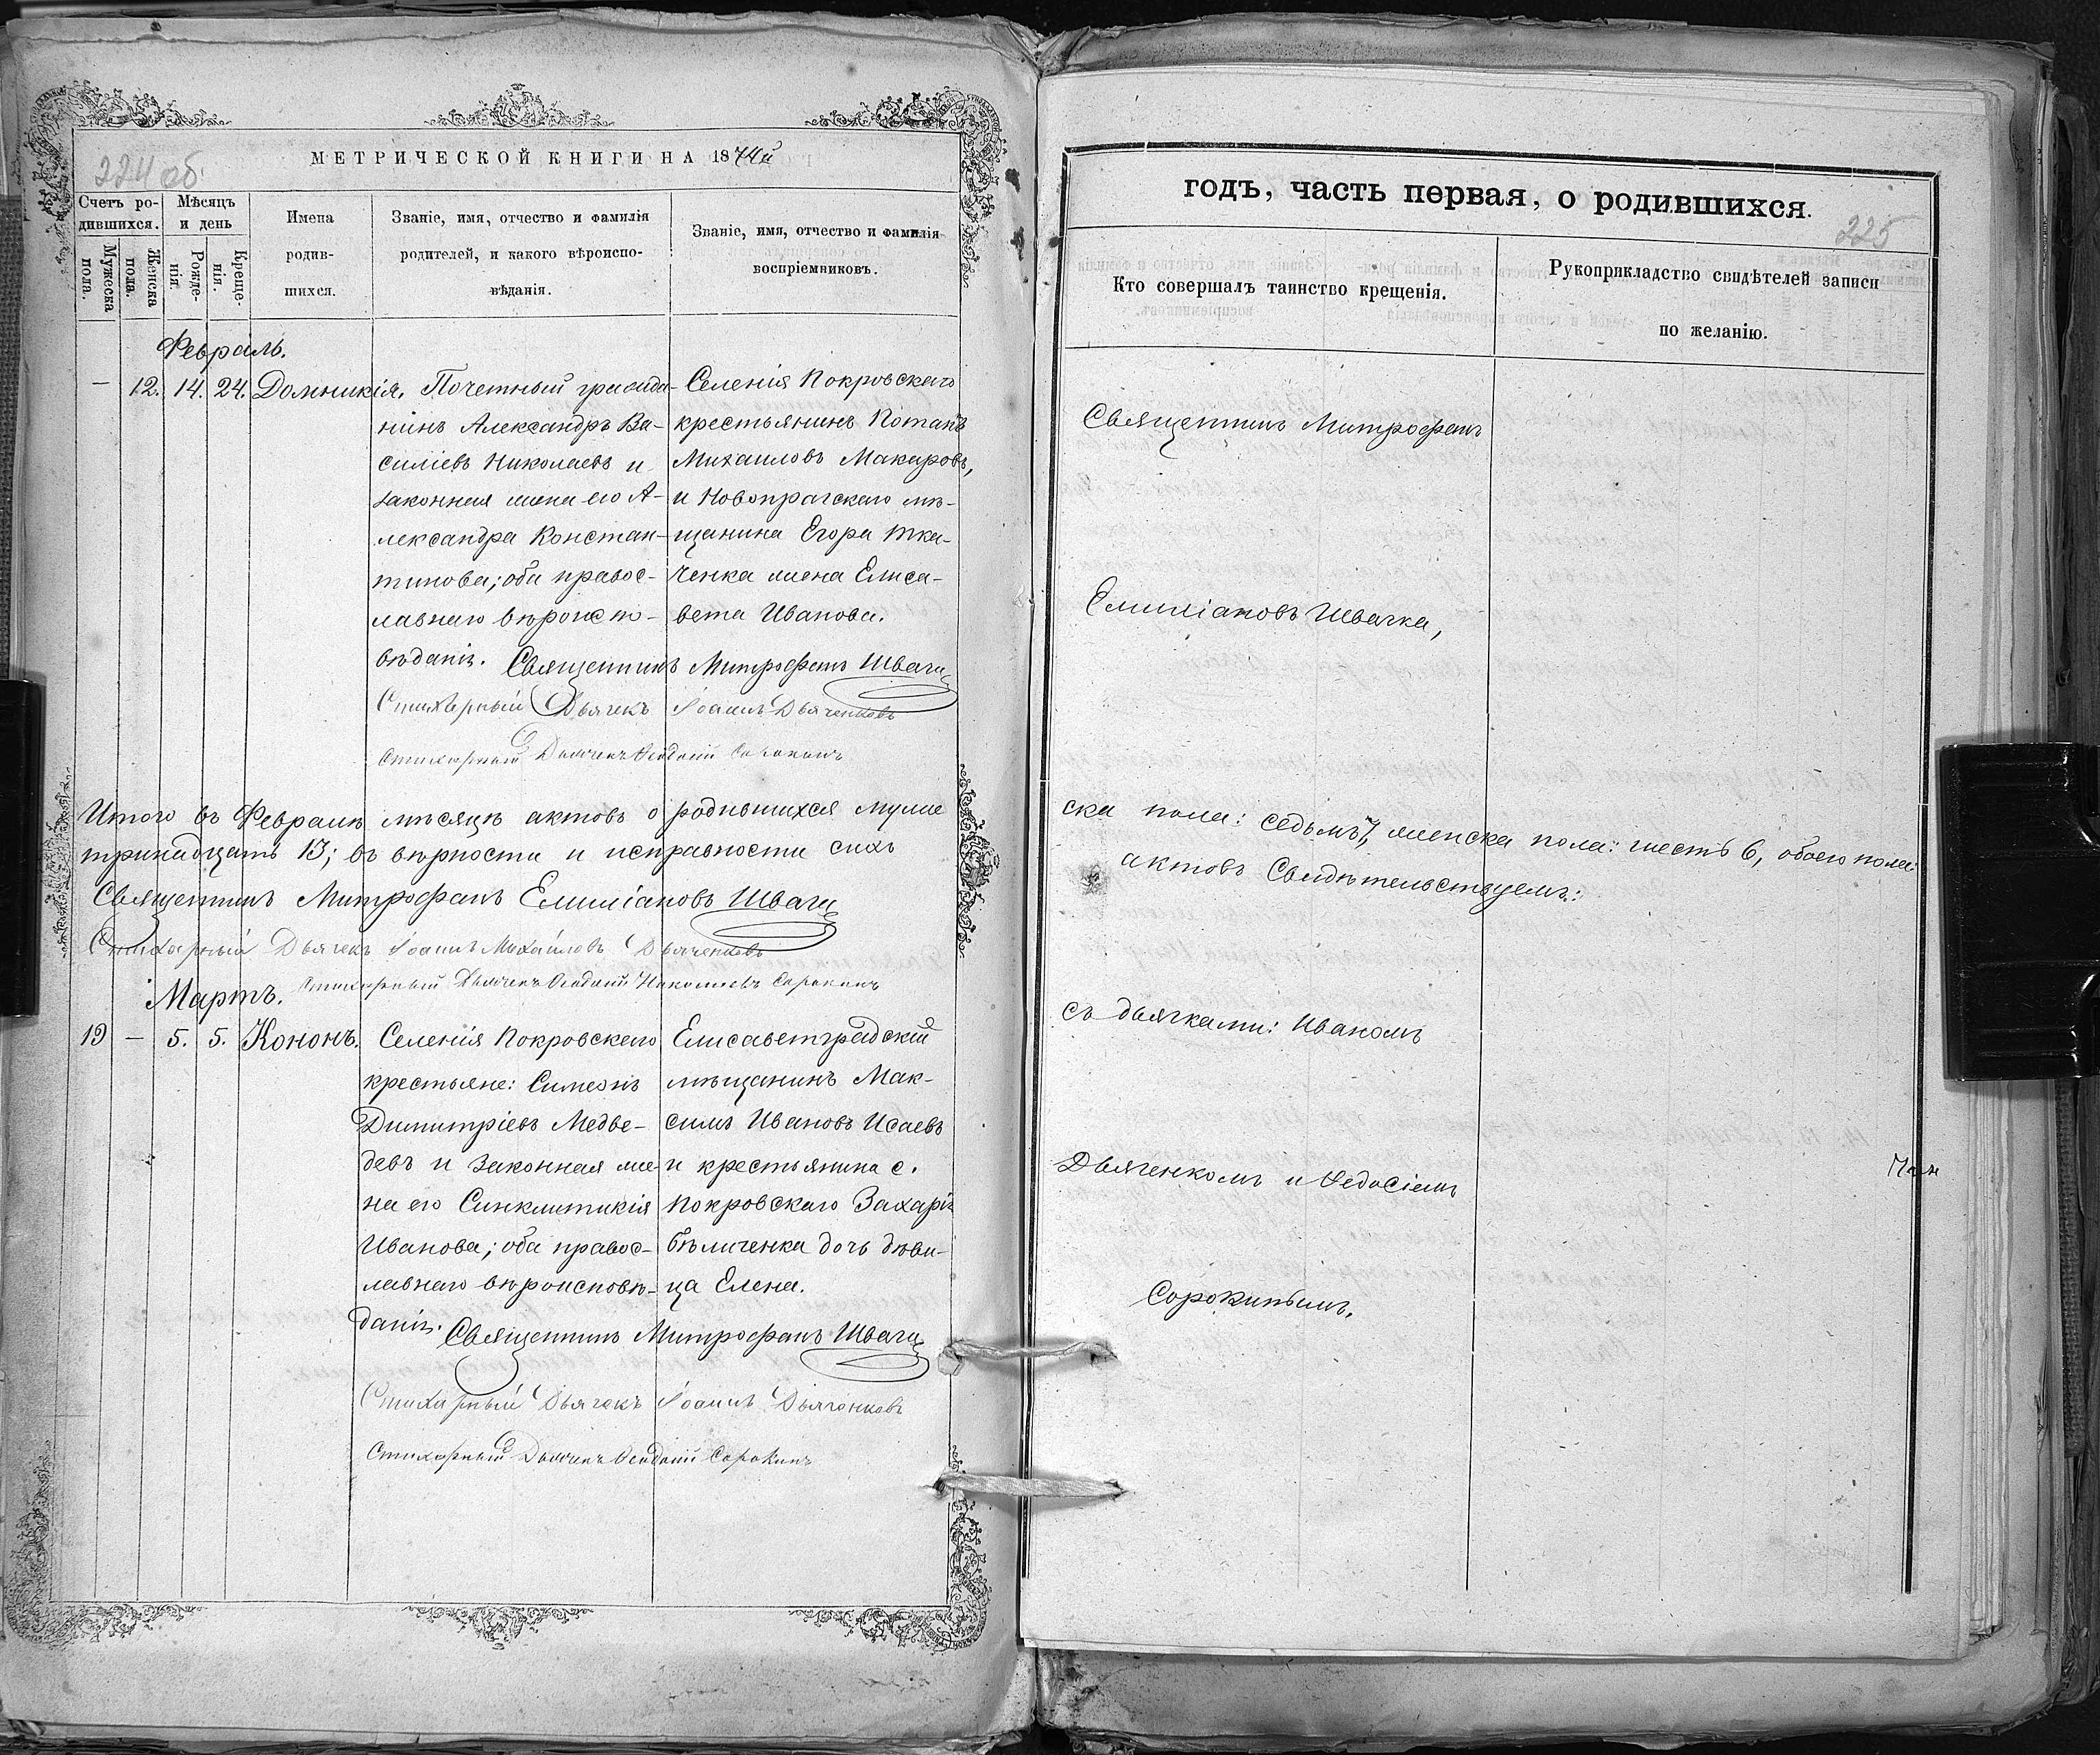 224 об.
МЕТРИЧЕСКОЙ КНИГИ НА 1874й
Счетъ ро-
дившихся.
Мѣсяцъ
и день
Мужеска
пола.
Женска
пола.
Рожде-
нія.
Креще-
нія.
Имена
родив-
шихся.
Званіе, имя, отчество и фамилія
родителей, и какого вѣроиспо-
вѣданія.
Званіе, имя, отчество и фамилія
воспріемниковъ.
Февраль.
— 12. 14. 24. Домникія.
Почетный гражда-
нинъ Александръ Ва-
силіевъ Николаевъ и
законная жена его А-
лександра Констан-
тинова; оба правос-
лавнаго вѣроиспо-
вѣданія.
Селенія Покровскаго
крестьянинъ Потапъ
Михаиловъ Макаровъ,
и Новопрагскаго мѣ-
щанина Егора Тка-
ченка жена Елиса-
вета Иванова.
Священникъ Митрофанъ Швачка
Стихарный Дьячекъ Іоаннъ Дьяченковъ
Стихарный Дьячекъ Ѳеодосій Сорокинъ
Итого въ Февралѣ мѣсяцѣ актовъ о родившихся муже
тринадцать 13; въ вѣрности и исправности сихъ
Священникъ Митрофанъ Емиліановъ Швачка
Стихарный Дьячекъ Іоаннъ Михайловъ Дьяченковъ
Стихарный Дьячекъ Ѳеодосій Николаевъ Сорокинъ
Мартъ.
19 — 5. 5. Кононъ.
Селенія Покровскаго
крестьяне: Симеонъ
Димитріевъ Медве-
девъ и законная же-
на его Синклитикія
Иванова; оба правос-
лавнаго вѣроисповѣ-
данія.
Елисаветградскій
мѣщанинъ Мак-
симъ Ивановъ Исаевъ
и крестьянина с.
Покровскаго Захарія
Бѣличенка дочь дѣви-
ца Елена.
Священникъ Митрофанъ Швачка
Стихарный Дьячекъ Іоаннъ Дьяченковъ
Стихарный Дьячекъ Ѳеодосій Сорокинъ
годъ, часть первая, о родившихся.
225
Кто совершалъ таинство крещенія.
Рукоприкладство свидѣтелей записи
по желанію.
Священникъ Митрофанъ
Емиліановъ Швачка,
ска пола: седьмъ 7, женска пола: шесть 6, обоего пола
актовъ Свидѣтельствуемъ:
съ дьячками: Иваномъ
Дьяченкомъ и Ѳедосіемъ
Сорокинымъ.